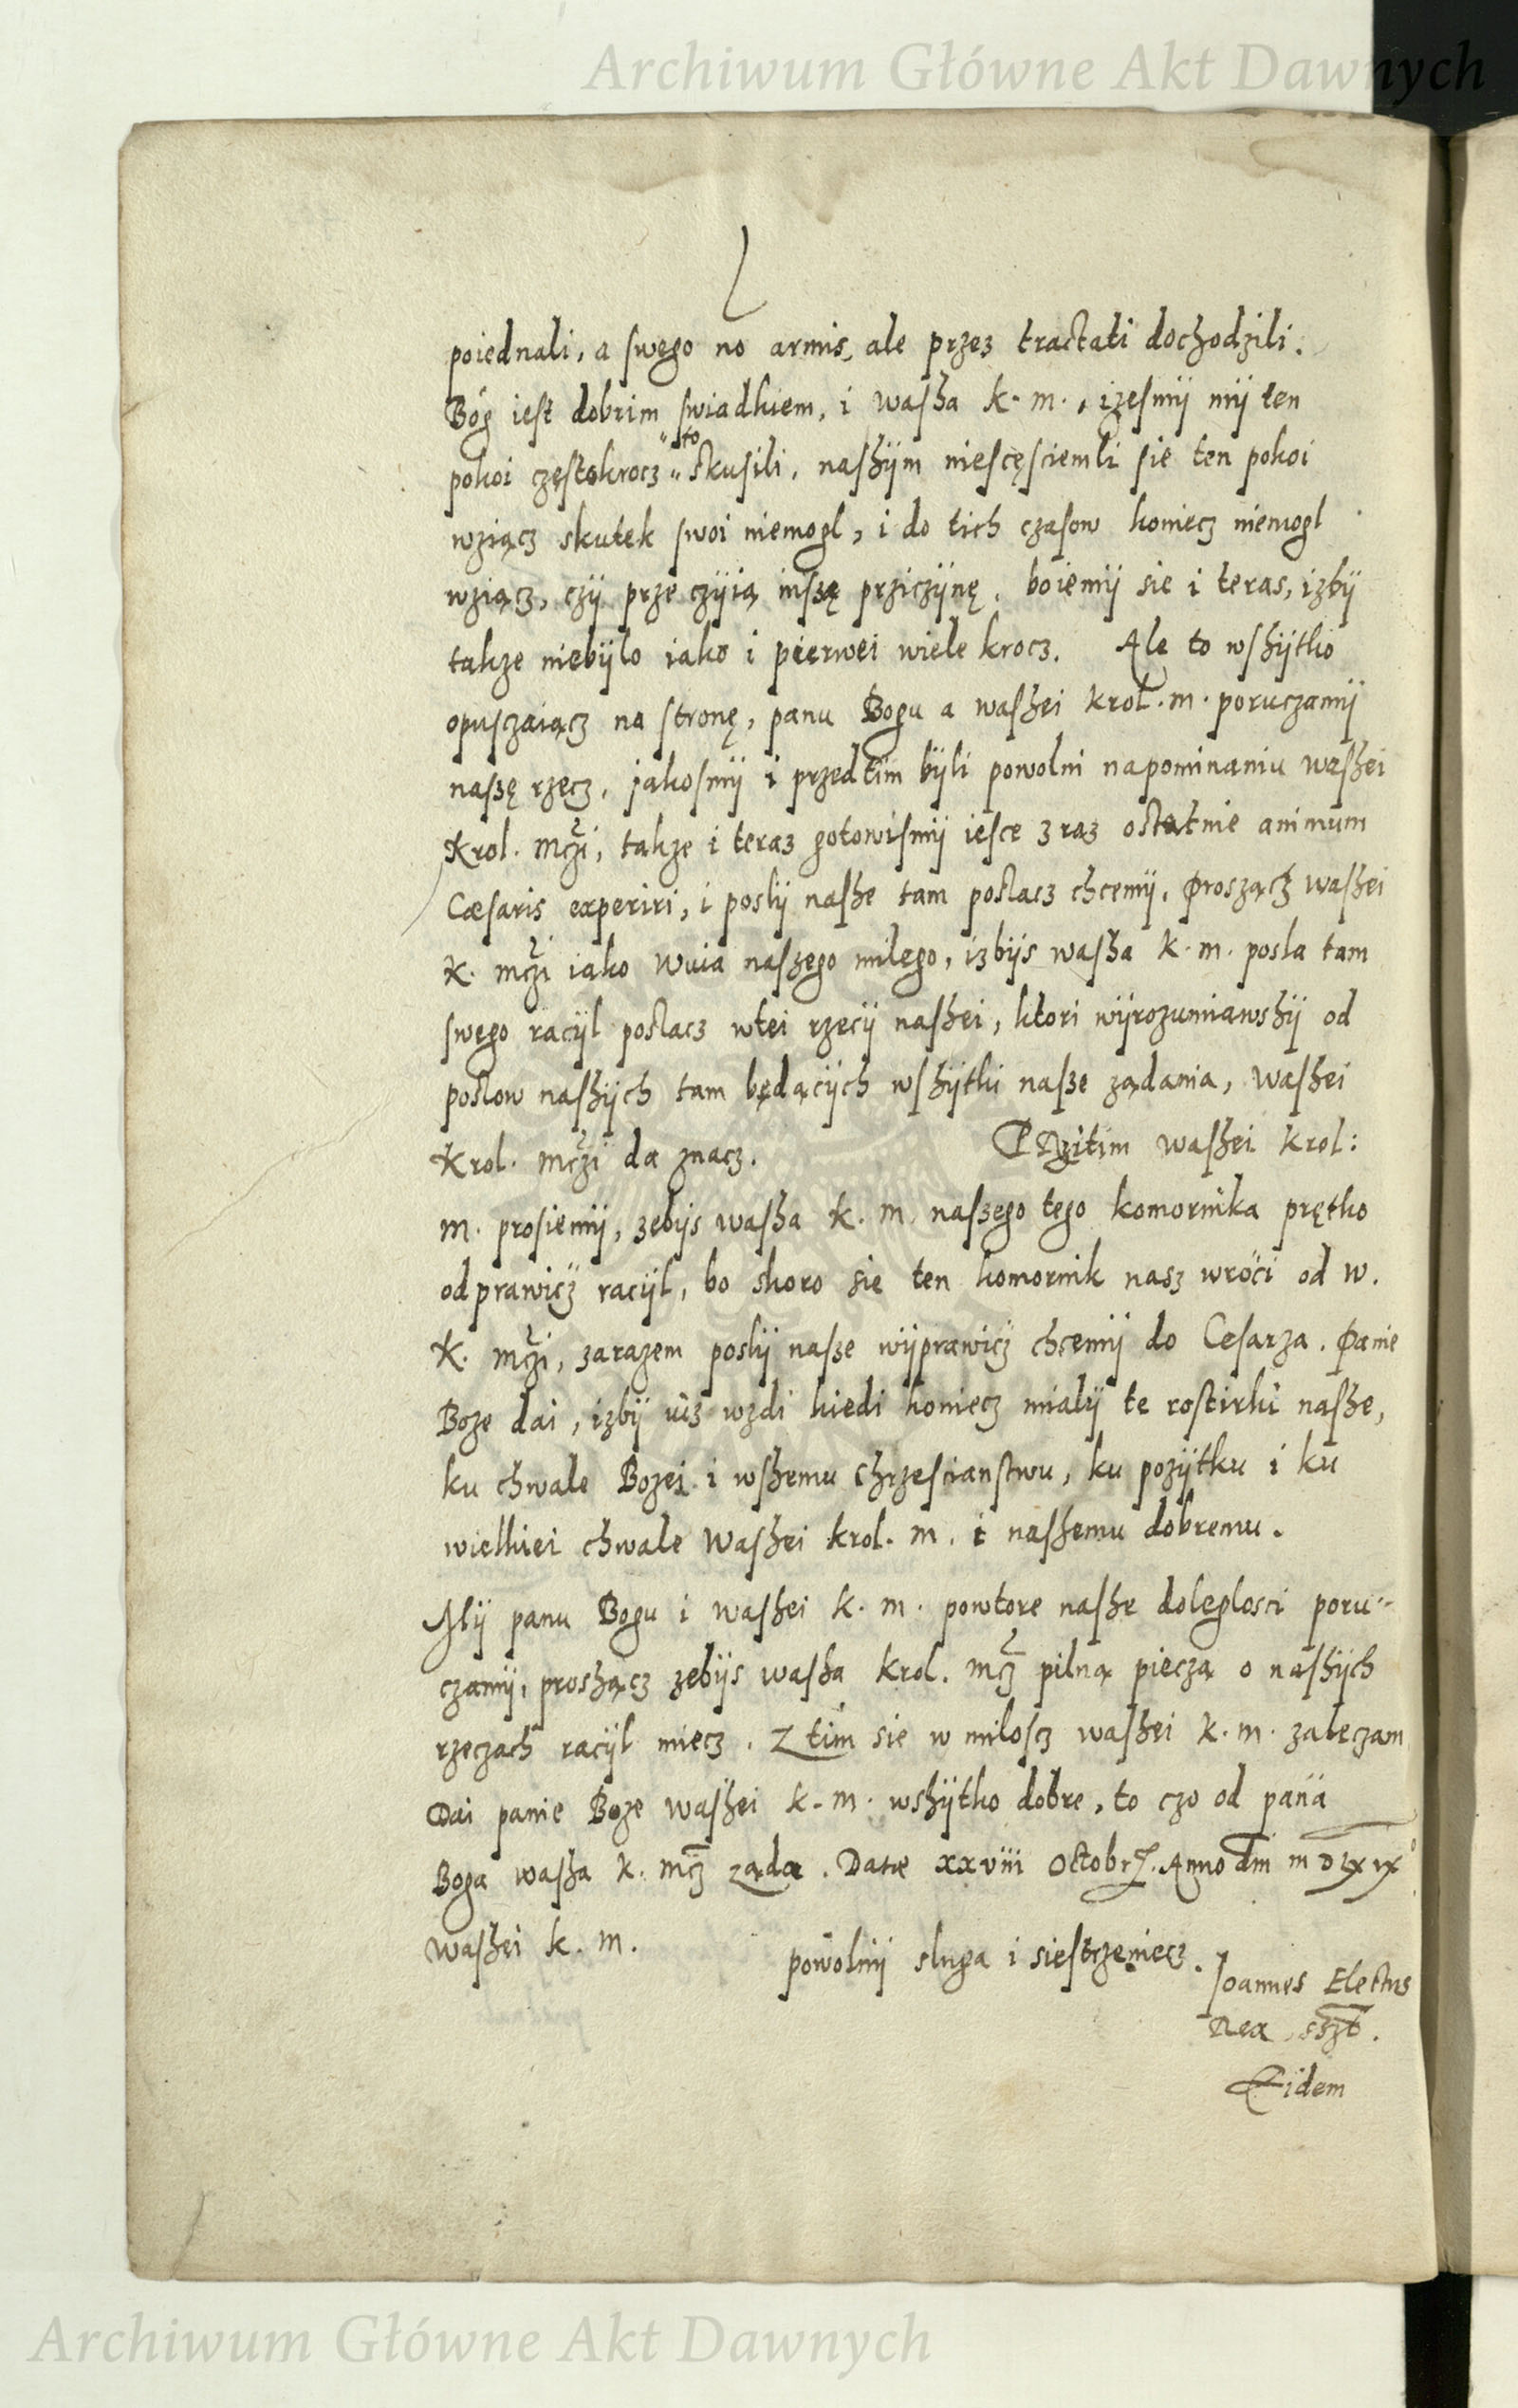 Archiwum Główne Akt Dawnych
poiednali, a swego no armis, ale przez tractati dochodzili.
Bóg iest dobrim swiadkiem, i washa k. m., izesmÿ mÿ ten
to
pokoi częstokrocz skusili, nashÿm niescęsciemli sie ten pokoi
wziącz skutek swoi niemogl, i do tich czasow koniecz niemogl
wziącz, czÿ prze czÿią inszę prziczÿnę. boiemÿ sie i teras, izbÿ
takze niebÿlo iako i pierwei wiele krocz. Ale to wshÿtko
opusczaiącz na stronę, panu Bogu a washei krol. m. poruczamÿ
naszę rzecz, jakosmÿ i przedtim bÿli powolni napominaniu washei
Krol. mczi, takze i teraz gotowismÿ iesce z raz ostatnie animum
Cæsaris experiri, i poslÿ nashe tam poslacz chcemÿ, proszącz washei
K. mczi iako wuia naszego milego, izbÿs washa k. m. posla tam
swego racÿl poslacz wtei rzecÿ nashei, ktori wÿrozumiawshÿ od
poslow nashÿch tam będącÿch wshÿtki nasze ządania, washei
Krol. mczi da znacz. PRzitim washei krol:
m. prosiemÿ, zebÿs washa k. m. naszego tego komornika prętko
odprawicz racÿl, bo skoro sie ten komornik nasz wróci od w.
K. mczi, zarazem poslÿ nasze wÿprawicz chcemÿ do Cesarza. Panie
Boze dai, izbÿ uiz wzdi kiedi koniecz mialÿ te rostirki nashe,
ku chwale Bozei i wshemu chrzescianstwu, ku pozÿtku i ku
wielkiei chwale washei krol. m. i nashemu dobremu.
Mÿ panu Bogu i washei k. m. powtore nashe doleglosci poru-
czamÿ, proshącz zebÿs washa krol. mcz pilną pieczą o nashÿch
rzeczach racÿl miecz. Z tim sie w miloscz washei k. m. zaleczam
Dai panie Boze washei k. m. wshÿtko dobre, to czo od pana
Boga washa k. mcz ząda. Datæ xxviii Octobr. Anno dni m D lx ix
washei k. m.
powolnÿ sluga i siestrzeniecz.
Joannes Electus
Rex
Eidem
Archiwum Główne Akt Dawnych